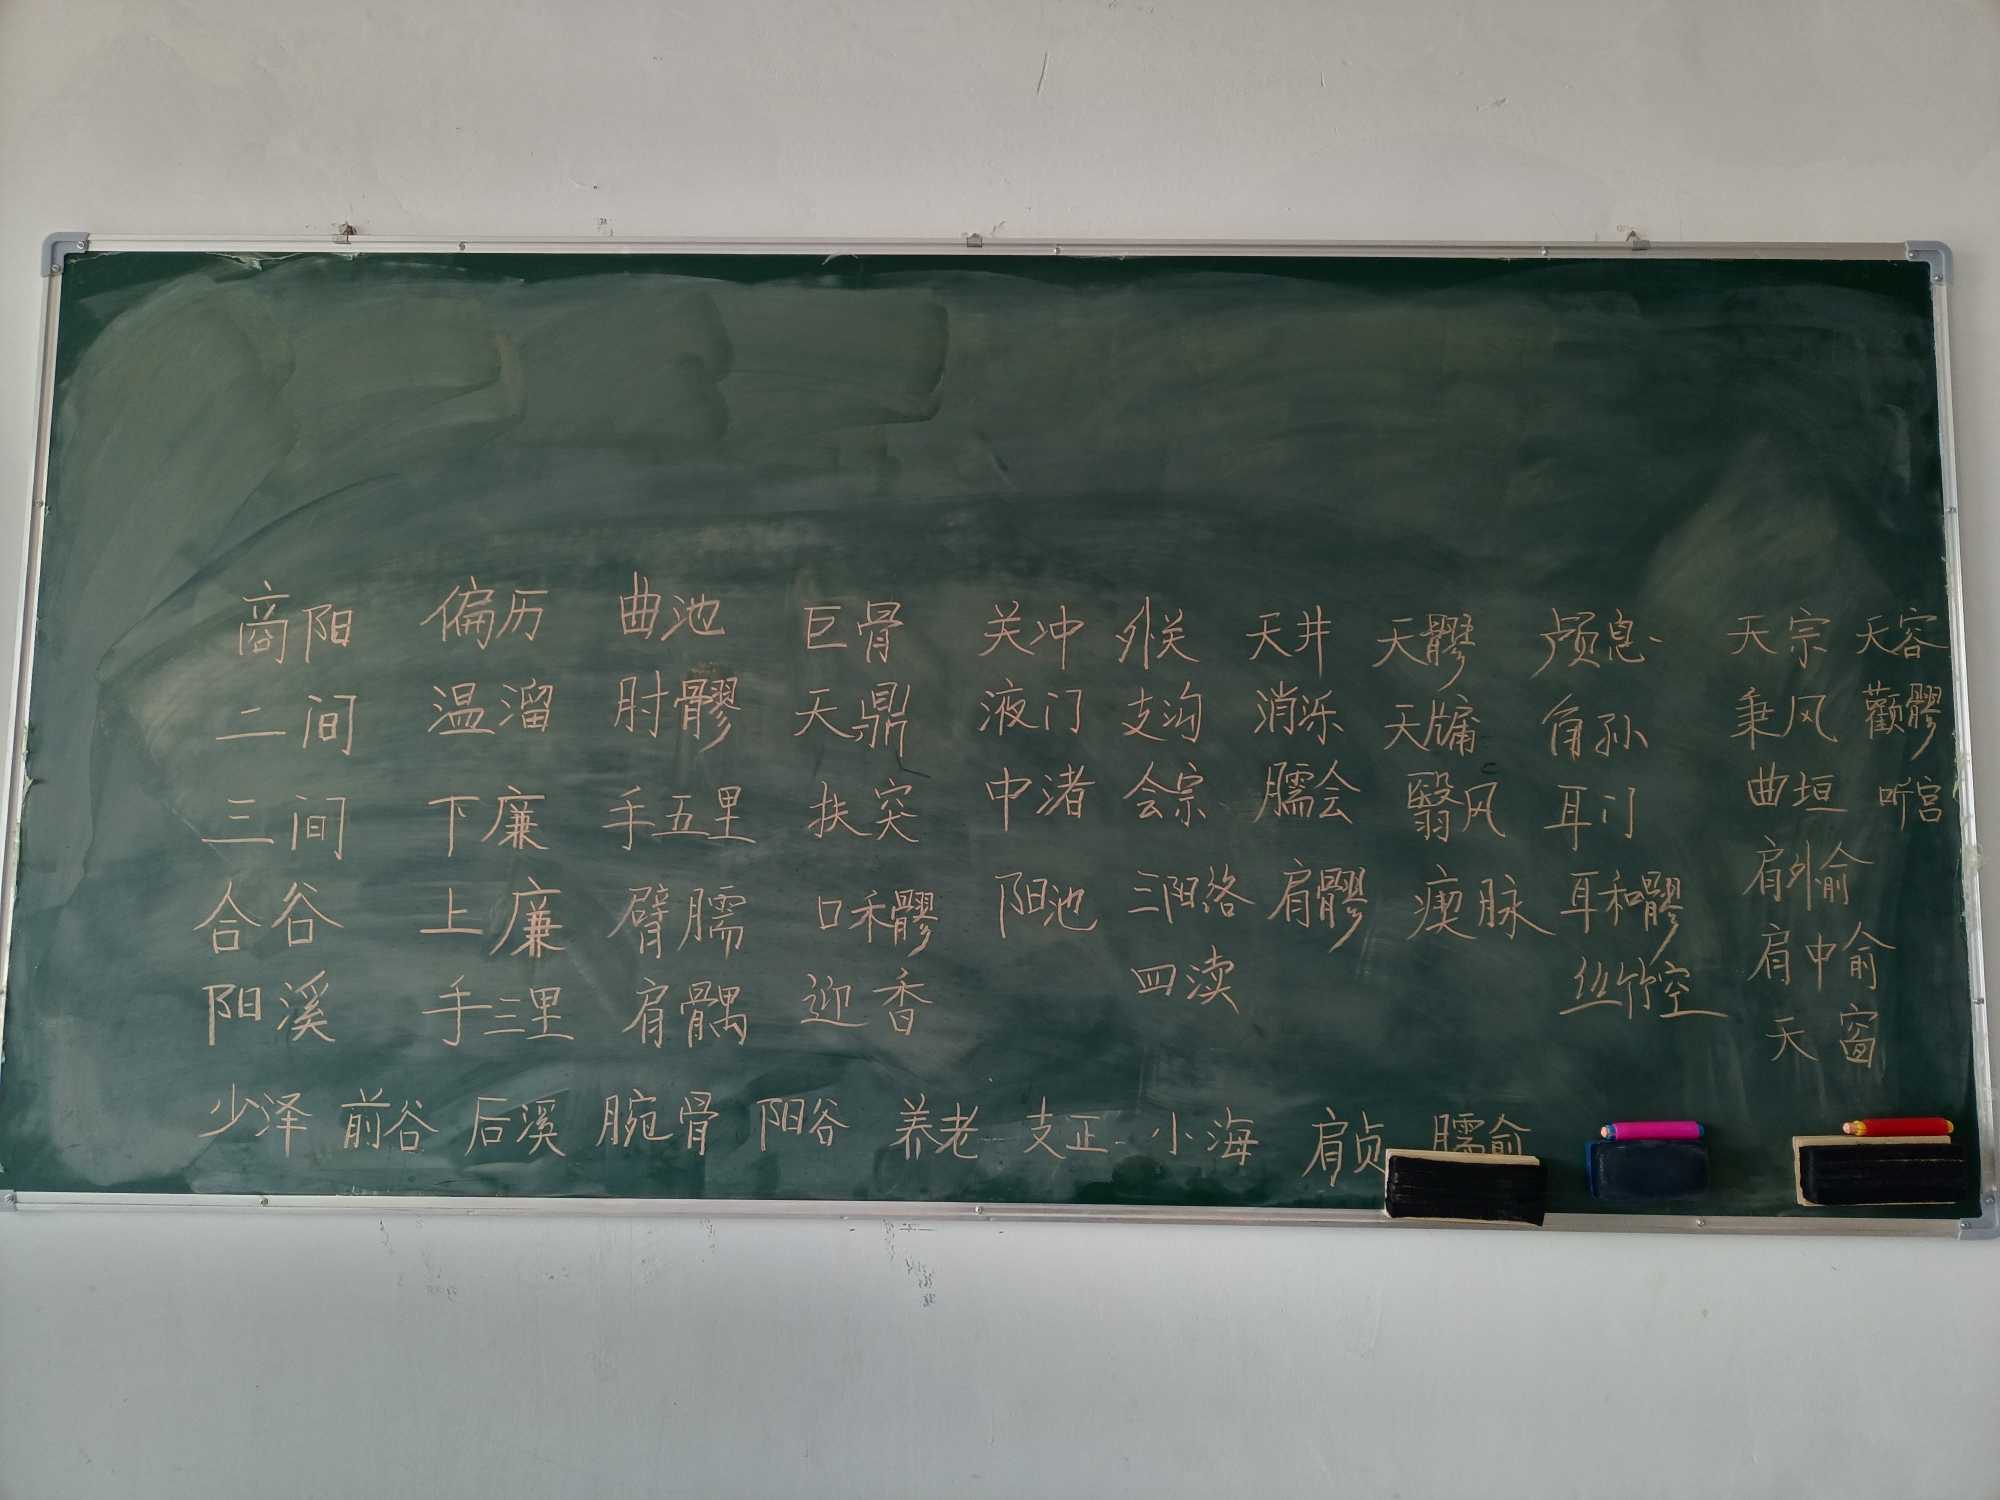 商阳 偏历 曲池 巨骨 关冲 外关 天井 天髎 颅息 天宗 天容
二间 温溜 肘髎 天鼎 液门 支沟 消泺 天牖 角孙 秉风 颧髎
三间 下廉 手五里 扶突 中渚 会宗 臑会 翳风 耳门 曲垣 听宫
合谷 上廉 臂臑 口禾髎 阳池 三阳络 肩髎 瘈脉 耳和髎 肩外俞
阳溪 手三里 肩髃 迎香 四渎 丝竹空 肩中俞
天窗
少泽 前谷 后溪 腕骨 阳谷 养老 支正 小海 肩贞 臑俞